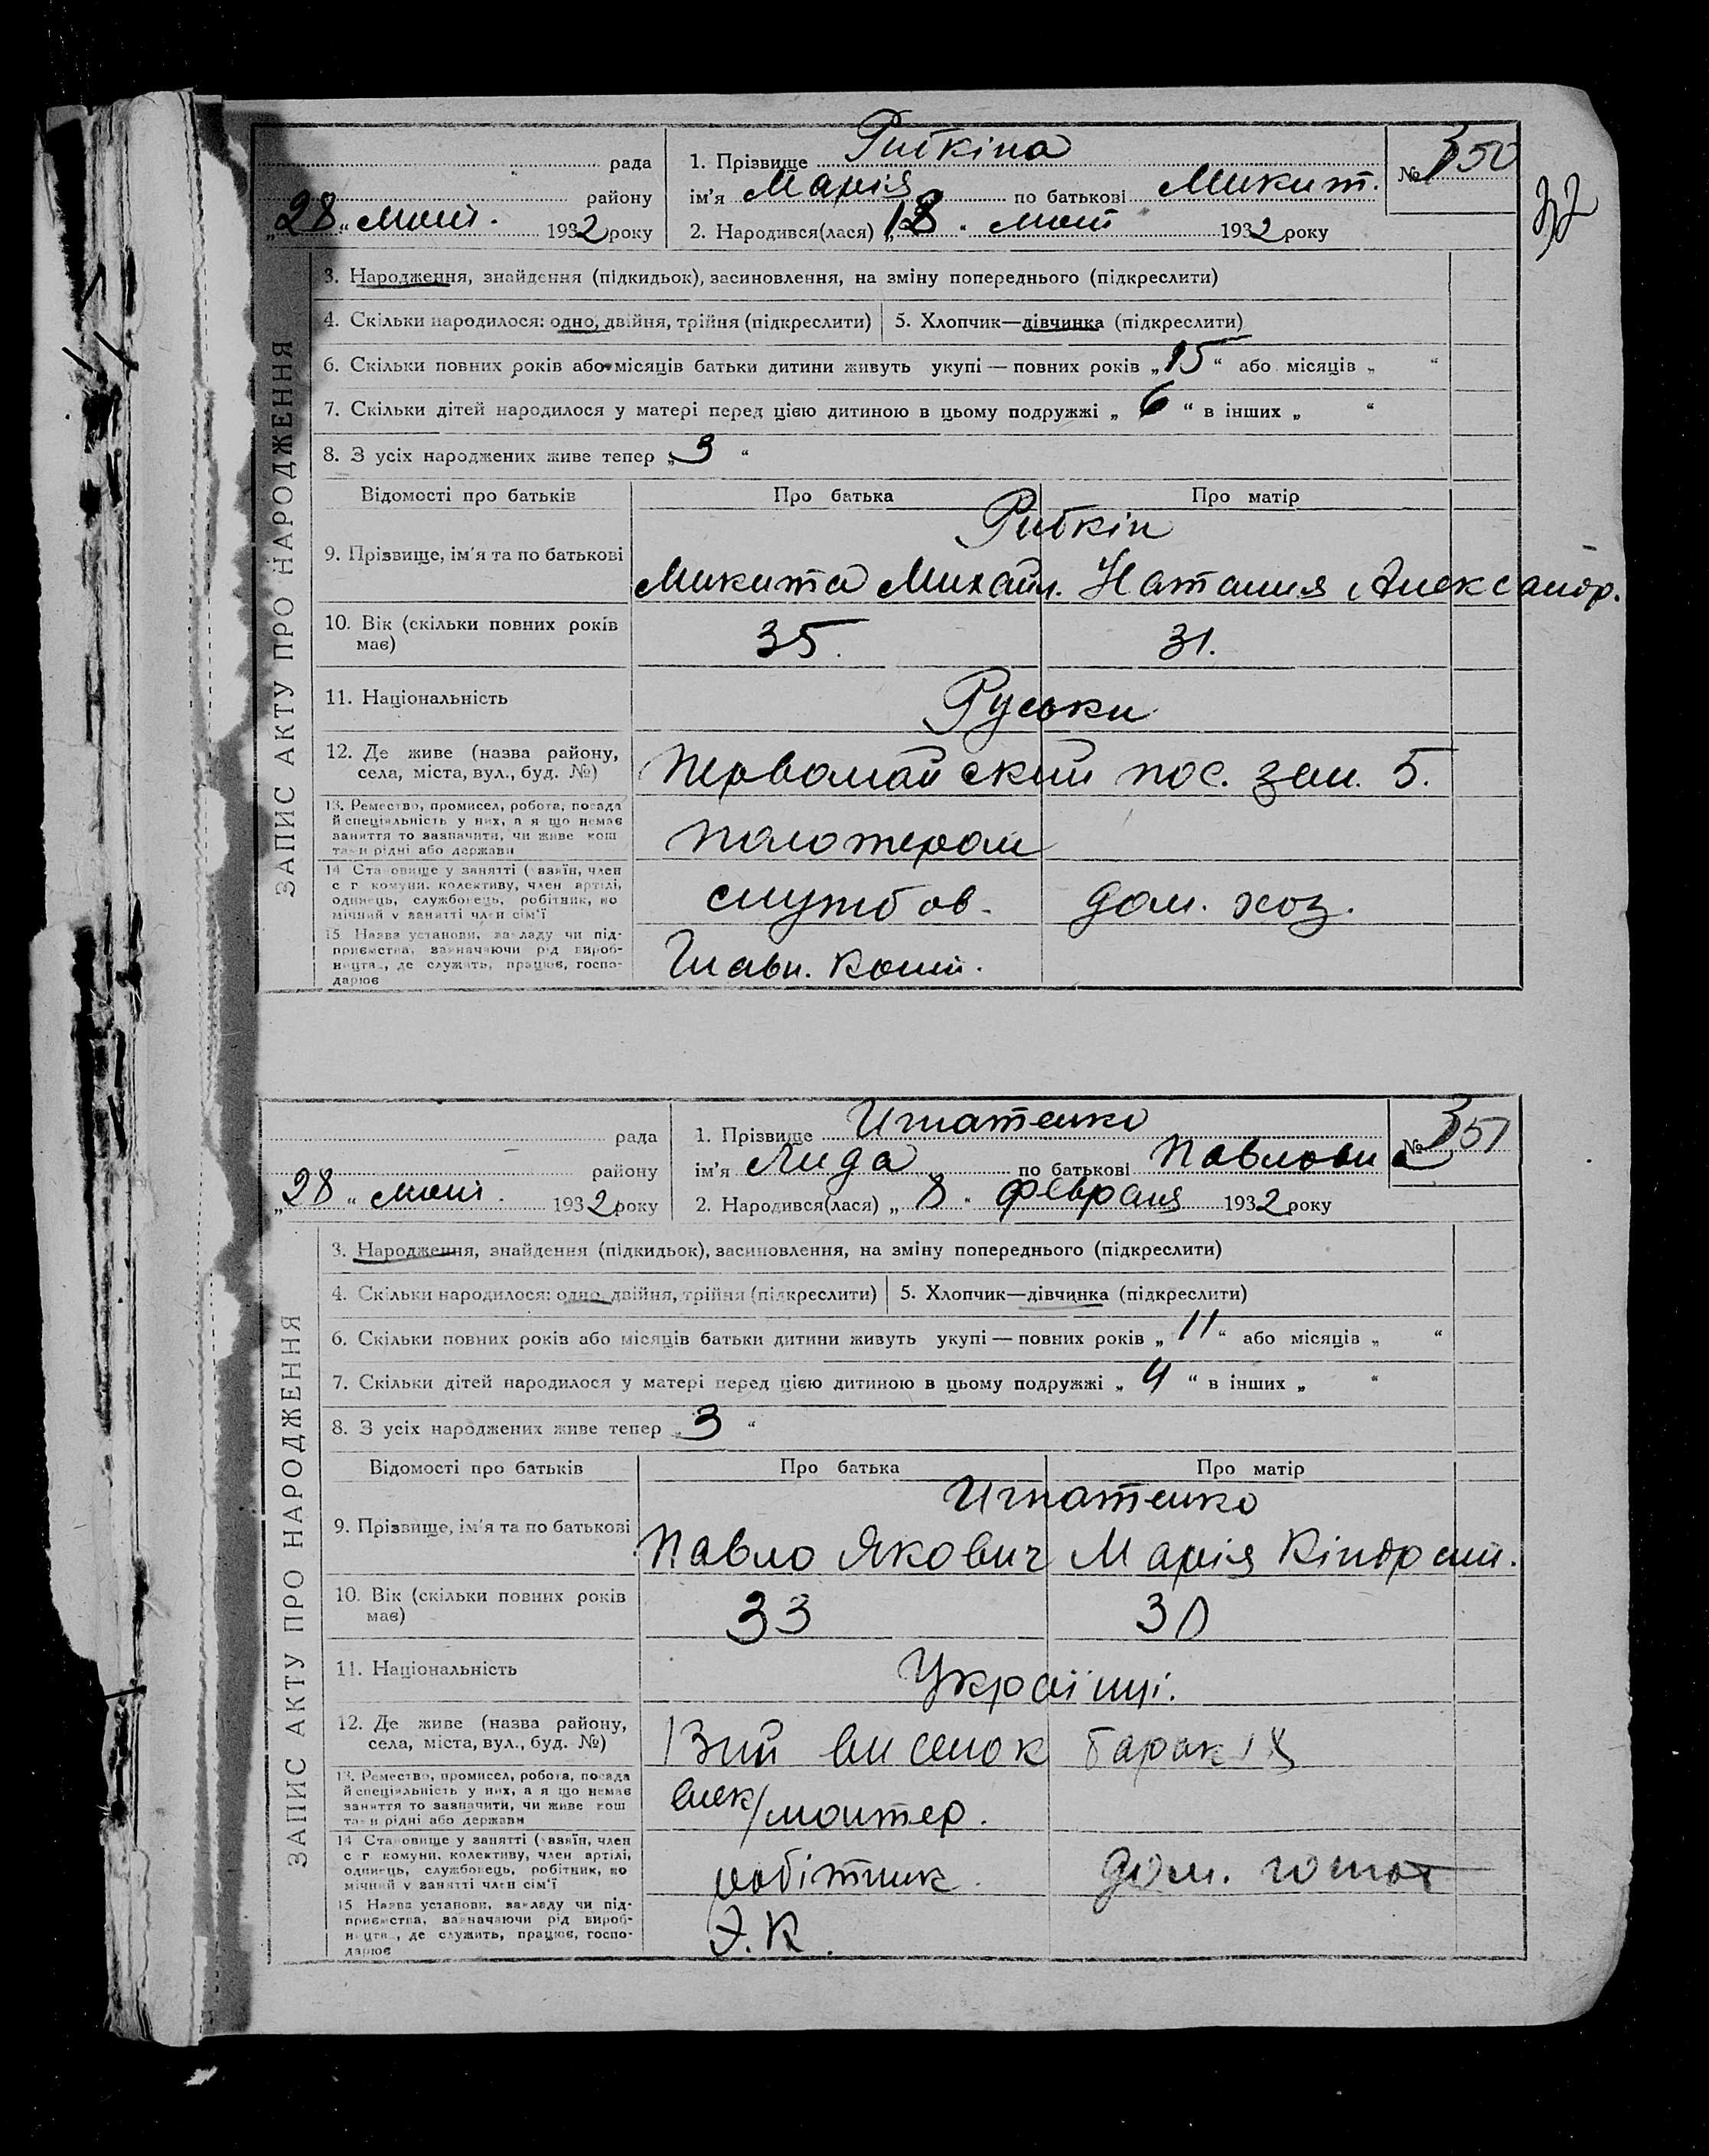 ЗАПИС АКТУ ПРО НАРОДЖЕННЯ
рада
району
„28“ 1932 року
1. Прізвище Риткіна
ім'я Марія по батькові Микит.
2. Народився(лася) „18“ 1932 року
№ 350
32
3. Народження, знайдення (підкидьок), засиновлення, на зміну попереднього (підкреслити)
4. Скільки народилося: одно, двійня, трійня (підкреслити) 5. Хлопчик—дівчинка (підкреслити)
6. Скільки повних років або місяців батьки дитини живуть укупі — повних років „15“ або місяців „ “
7. Скільки дітей народилося у матері перед цією дитиною в цьому подружжі „6“ в інших „ “
8. З усіх народжених живе тепер „3“
Відомості про батьків Про батька Про матір
Риткін
9. Прізвище, ім'я та по батькові
Микита Михайл. Наталия Александр.
10. Вік (скільки повних років має) 35. 31.
11. Національність Руськи
12. Де живе (назва району, села, міста, вул., буд. №) Первомайский пос. зем. 5.
13. Ремество, промисел, робота, посада й спеціяльність у них, а я що немає заняття то зазначити, чи живе кош там рідні або держави
14 Становище у занятті (хазяїн, член с г комуни, колективу, член артілі, одинець, службовець, робітник, помічний у занятті член сім'ї службов. дом. хоз.
15 Назва установи, закладу чи підприємства, зазначаючи рід виробництва, де служить, працює, господарює Главн. конт.
ЗАПИС АКТУ ПРО НАРОДЖЕННЯ
рада
району
„28“ 1932 року
1. Прізвище Игнатенко
ім'я Лида по батькові Павловна
2. Народився(лася) „8“ февраля 1932 року
№ 351
3. Народження, знайдення (підкидьок), засиновлення, на зміну попереднього (підкреслити)
4. Скільки народилося: одно, двійня, трійня (підкреслити) 5. Хлопчик—дівчинка (підкреслити)
6. Скільки повних років або місяців батьки дитини живуть укупі — повних років „11“ або місяців „ “
7. Скільки дітей народилося у матері перед цією дитиною в цьому подружжі „4“ в інших „ “
8. З усіх народжених живе тепер „3“
Відомості про батьків Про батька Про матір
Игнатенко
9. Прізвище, ім'я та по батькові
Павло Якович Марія Кіндрат.
10. Вік (скільки повних років має) 33 30
11. Національність Українці.
12. Де живе (назва району, села, міста, вул., буд. №) 13ий виселок барак 18
13. Ремество, промисел, робота, посада й спеціяльність у них, а я що немає заняття то зазначити, чи живе кош там рідні або держави елек/монтер.
14 Становище у занятті (хазяїн, член с г комуни, колективу, член артілі, одинець, службовець, робітник, помічний у занятті член сім'ї робітник. дом.
15 Назва установи, закладу чи підприємства, зазначаючи рід виробництва, де служить, працює, господарює Э.К.